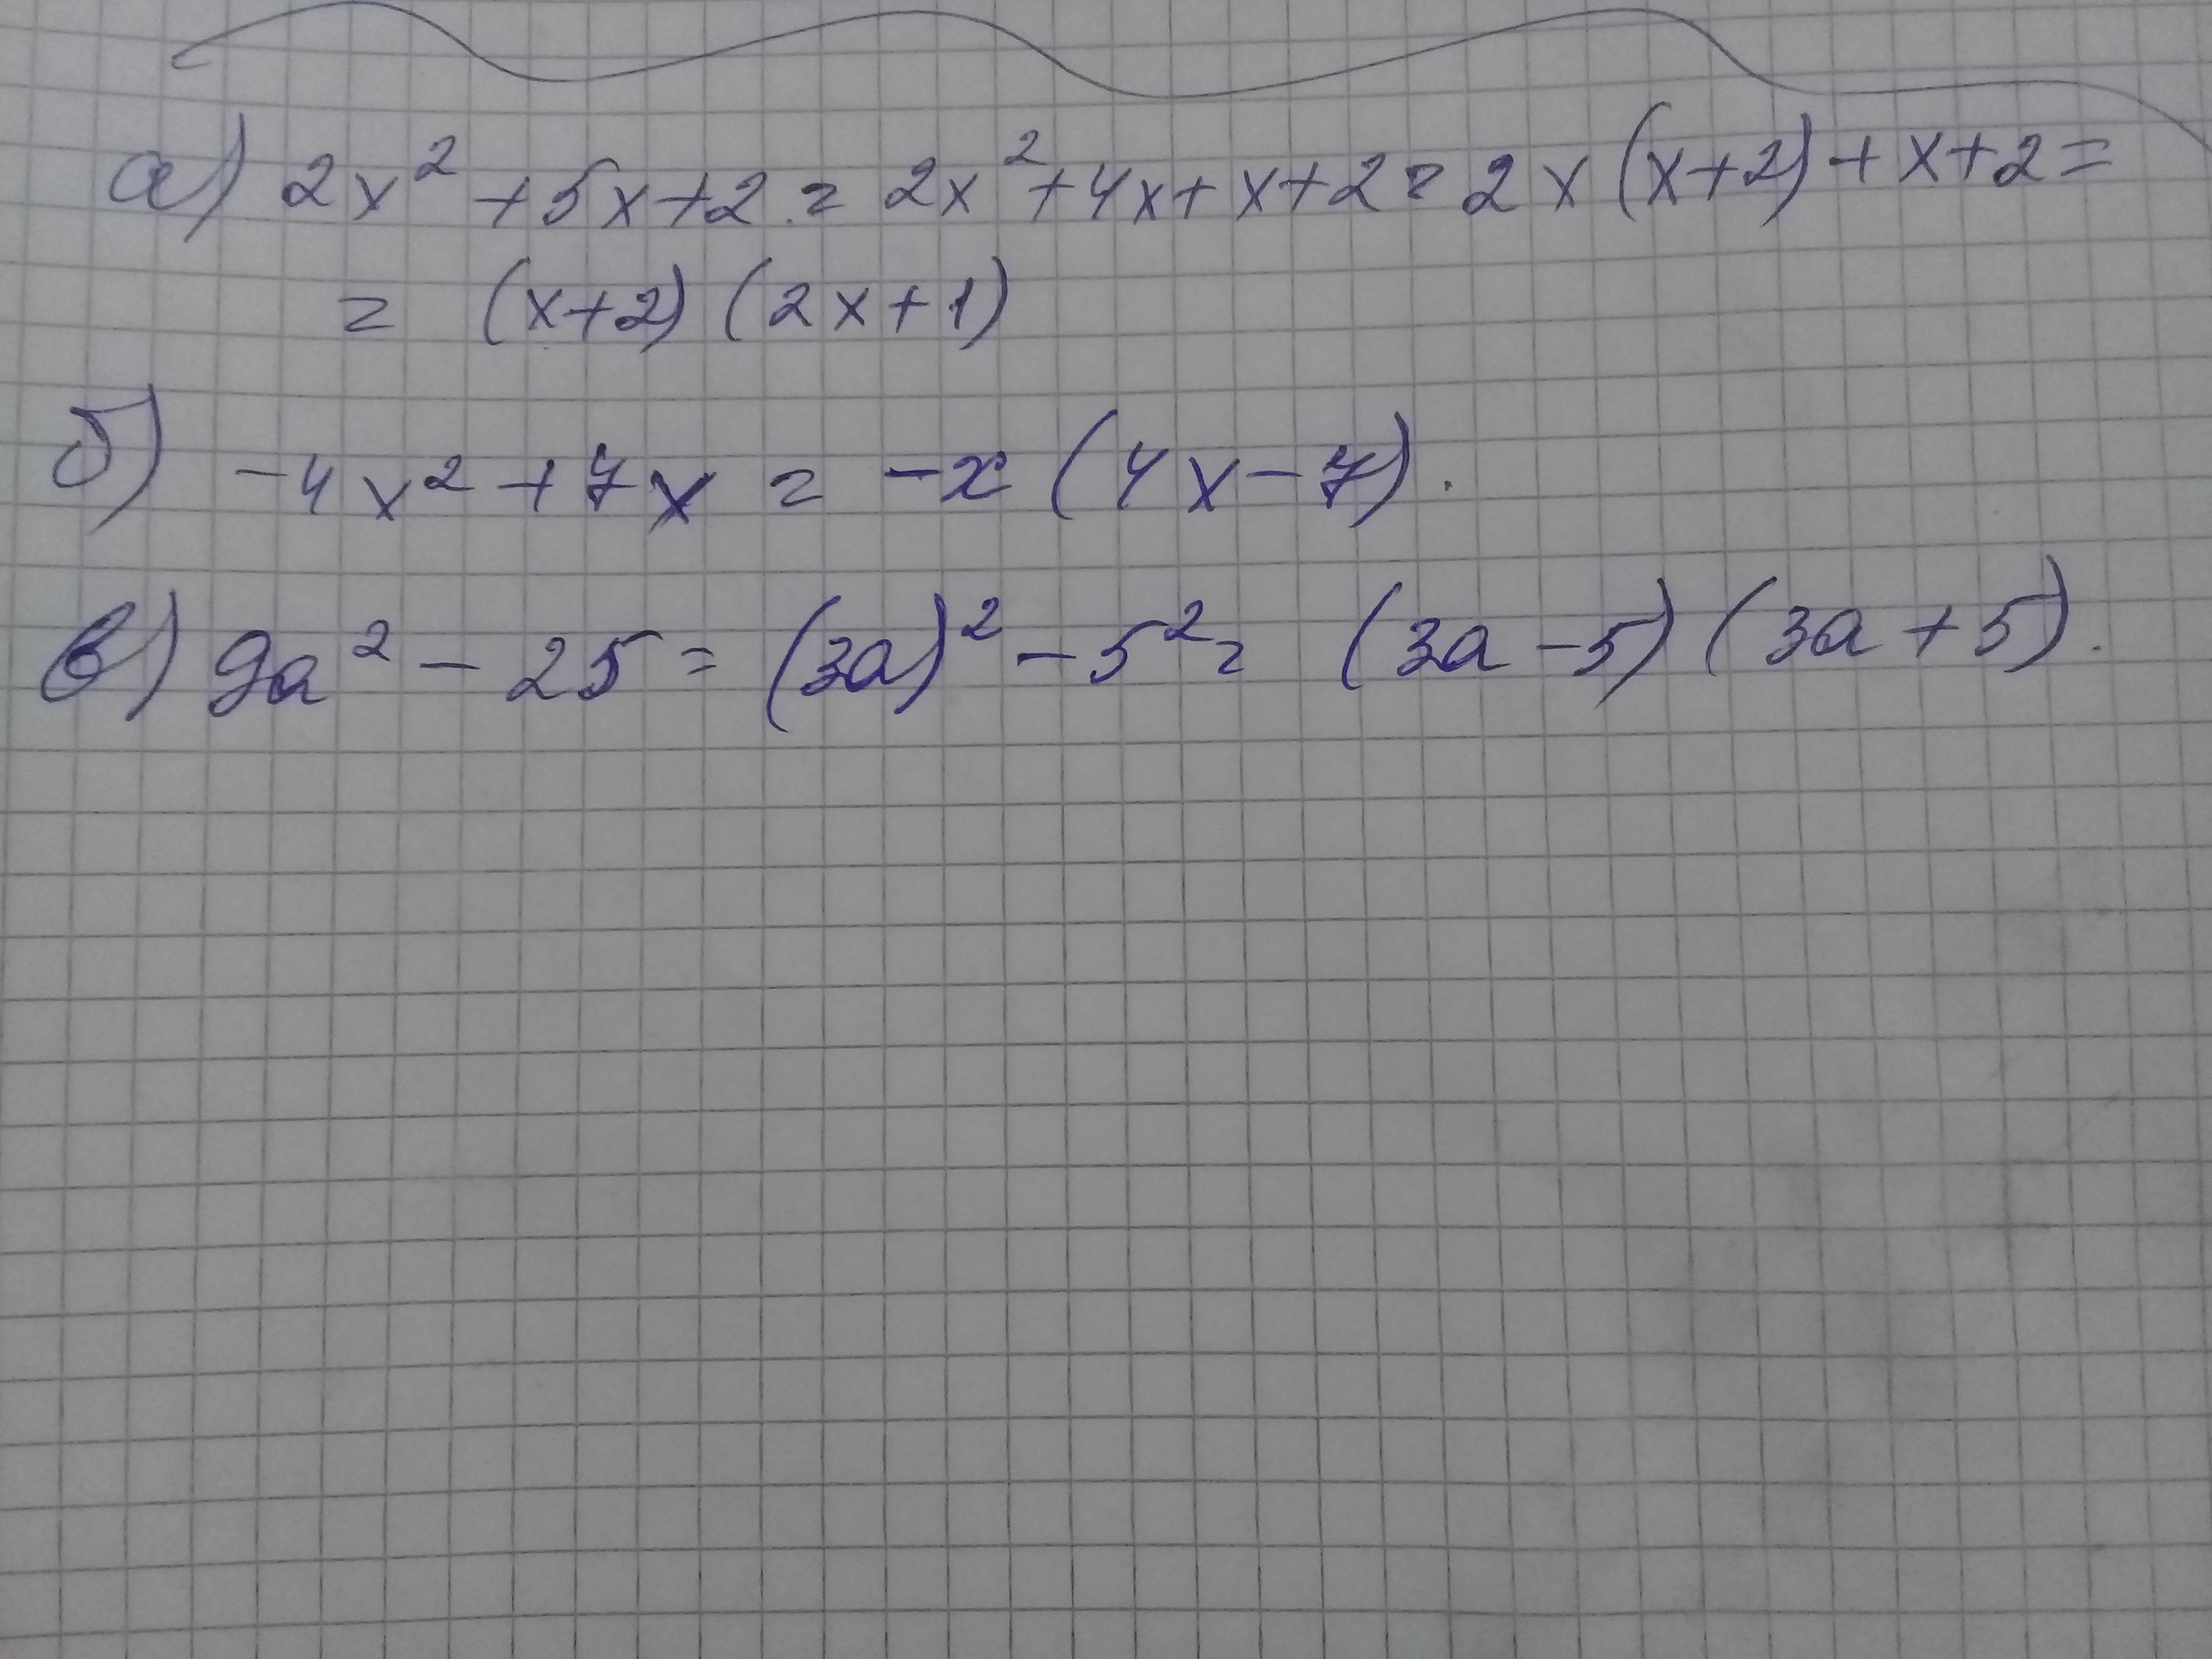 а) 2x² + 5x + 2 = 2x² + 4x + x + 2 = 2x (x+2) + x + 2 =
= (x+2) (2x+1)
б) -4x² + 7x = -x (4x - 7).
в) 9a² - 25 = (3a)² - 5² = (3a - 5) (3a + 5).